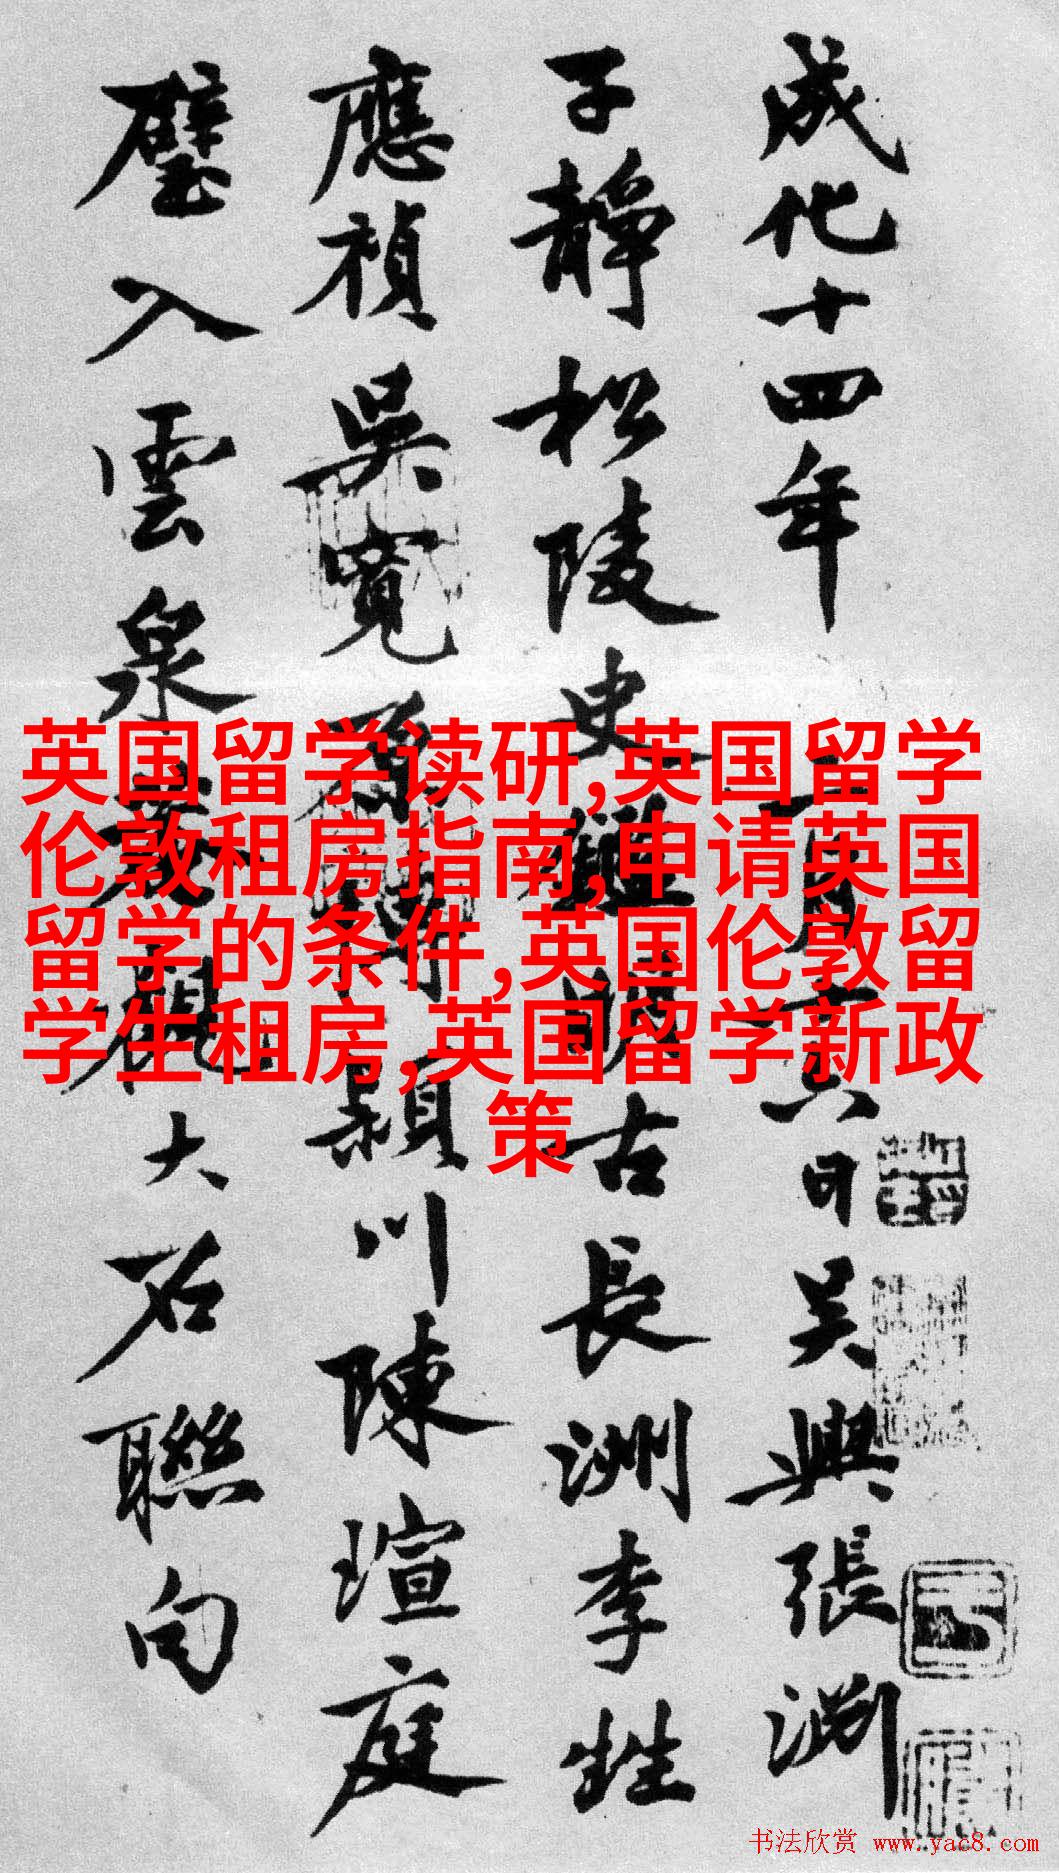 成化十四年 月十六日吴興張渊
子静松陵史 古長洲李甡
應禎吴寛 頴川陳瑄庭
璧入雲泉 大石聯句
英国留学读研,英国留学
伦敦租房指南,申请英国
留学的条件,英国伦敦留
学生租房,英国留学新政
策
书法欣赏 www.yac8.com